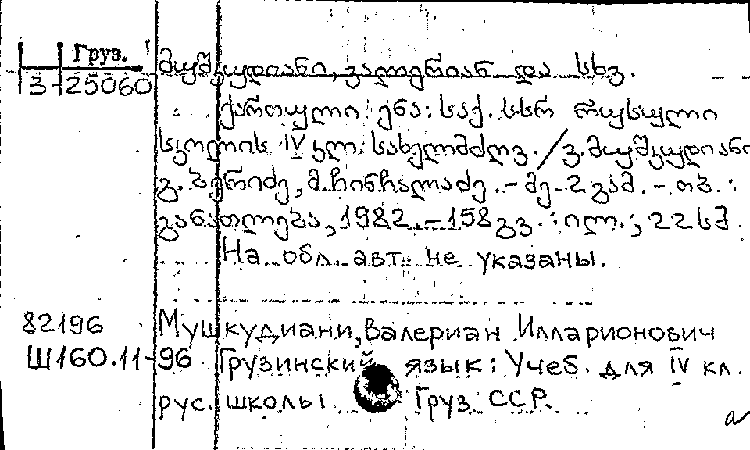 Груз.
3-25060
მუშკუდიანი, ვალერიან და სხვ.
ქართული ენა: საქ. სსრ რუსული
სკოლის IV კლ. სახელმძღვ. / ვ. მუშკუდიანი
გ. ბერიძე, მ. ჩინჩალაძე. - მე-2 გამ. - თბ. :
განათლება, 1982. - 158 გვ. : ილ. ; 22 სმ.
На обл. авт. не указаны.
82196 Мушкудиани, Валериан Илларионович
Ш160.11-96 Грузинский язык: Учеб. для IV кл.
рус. школы Груз. ССР.